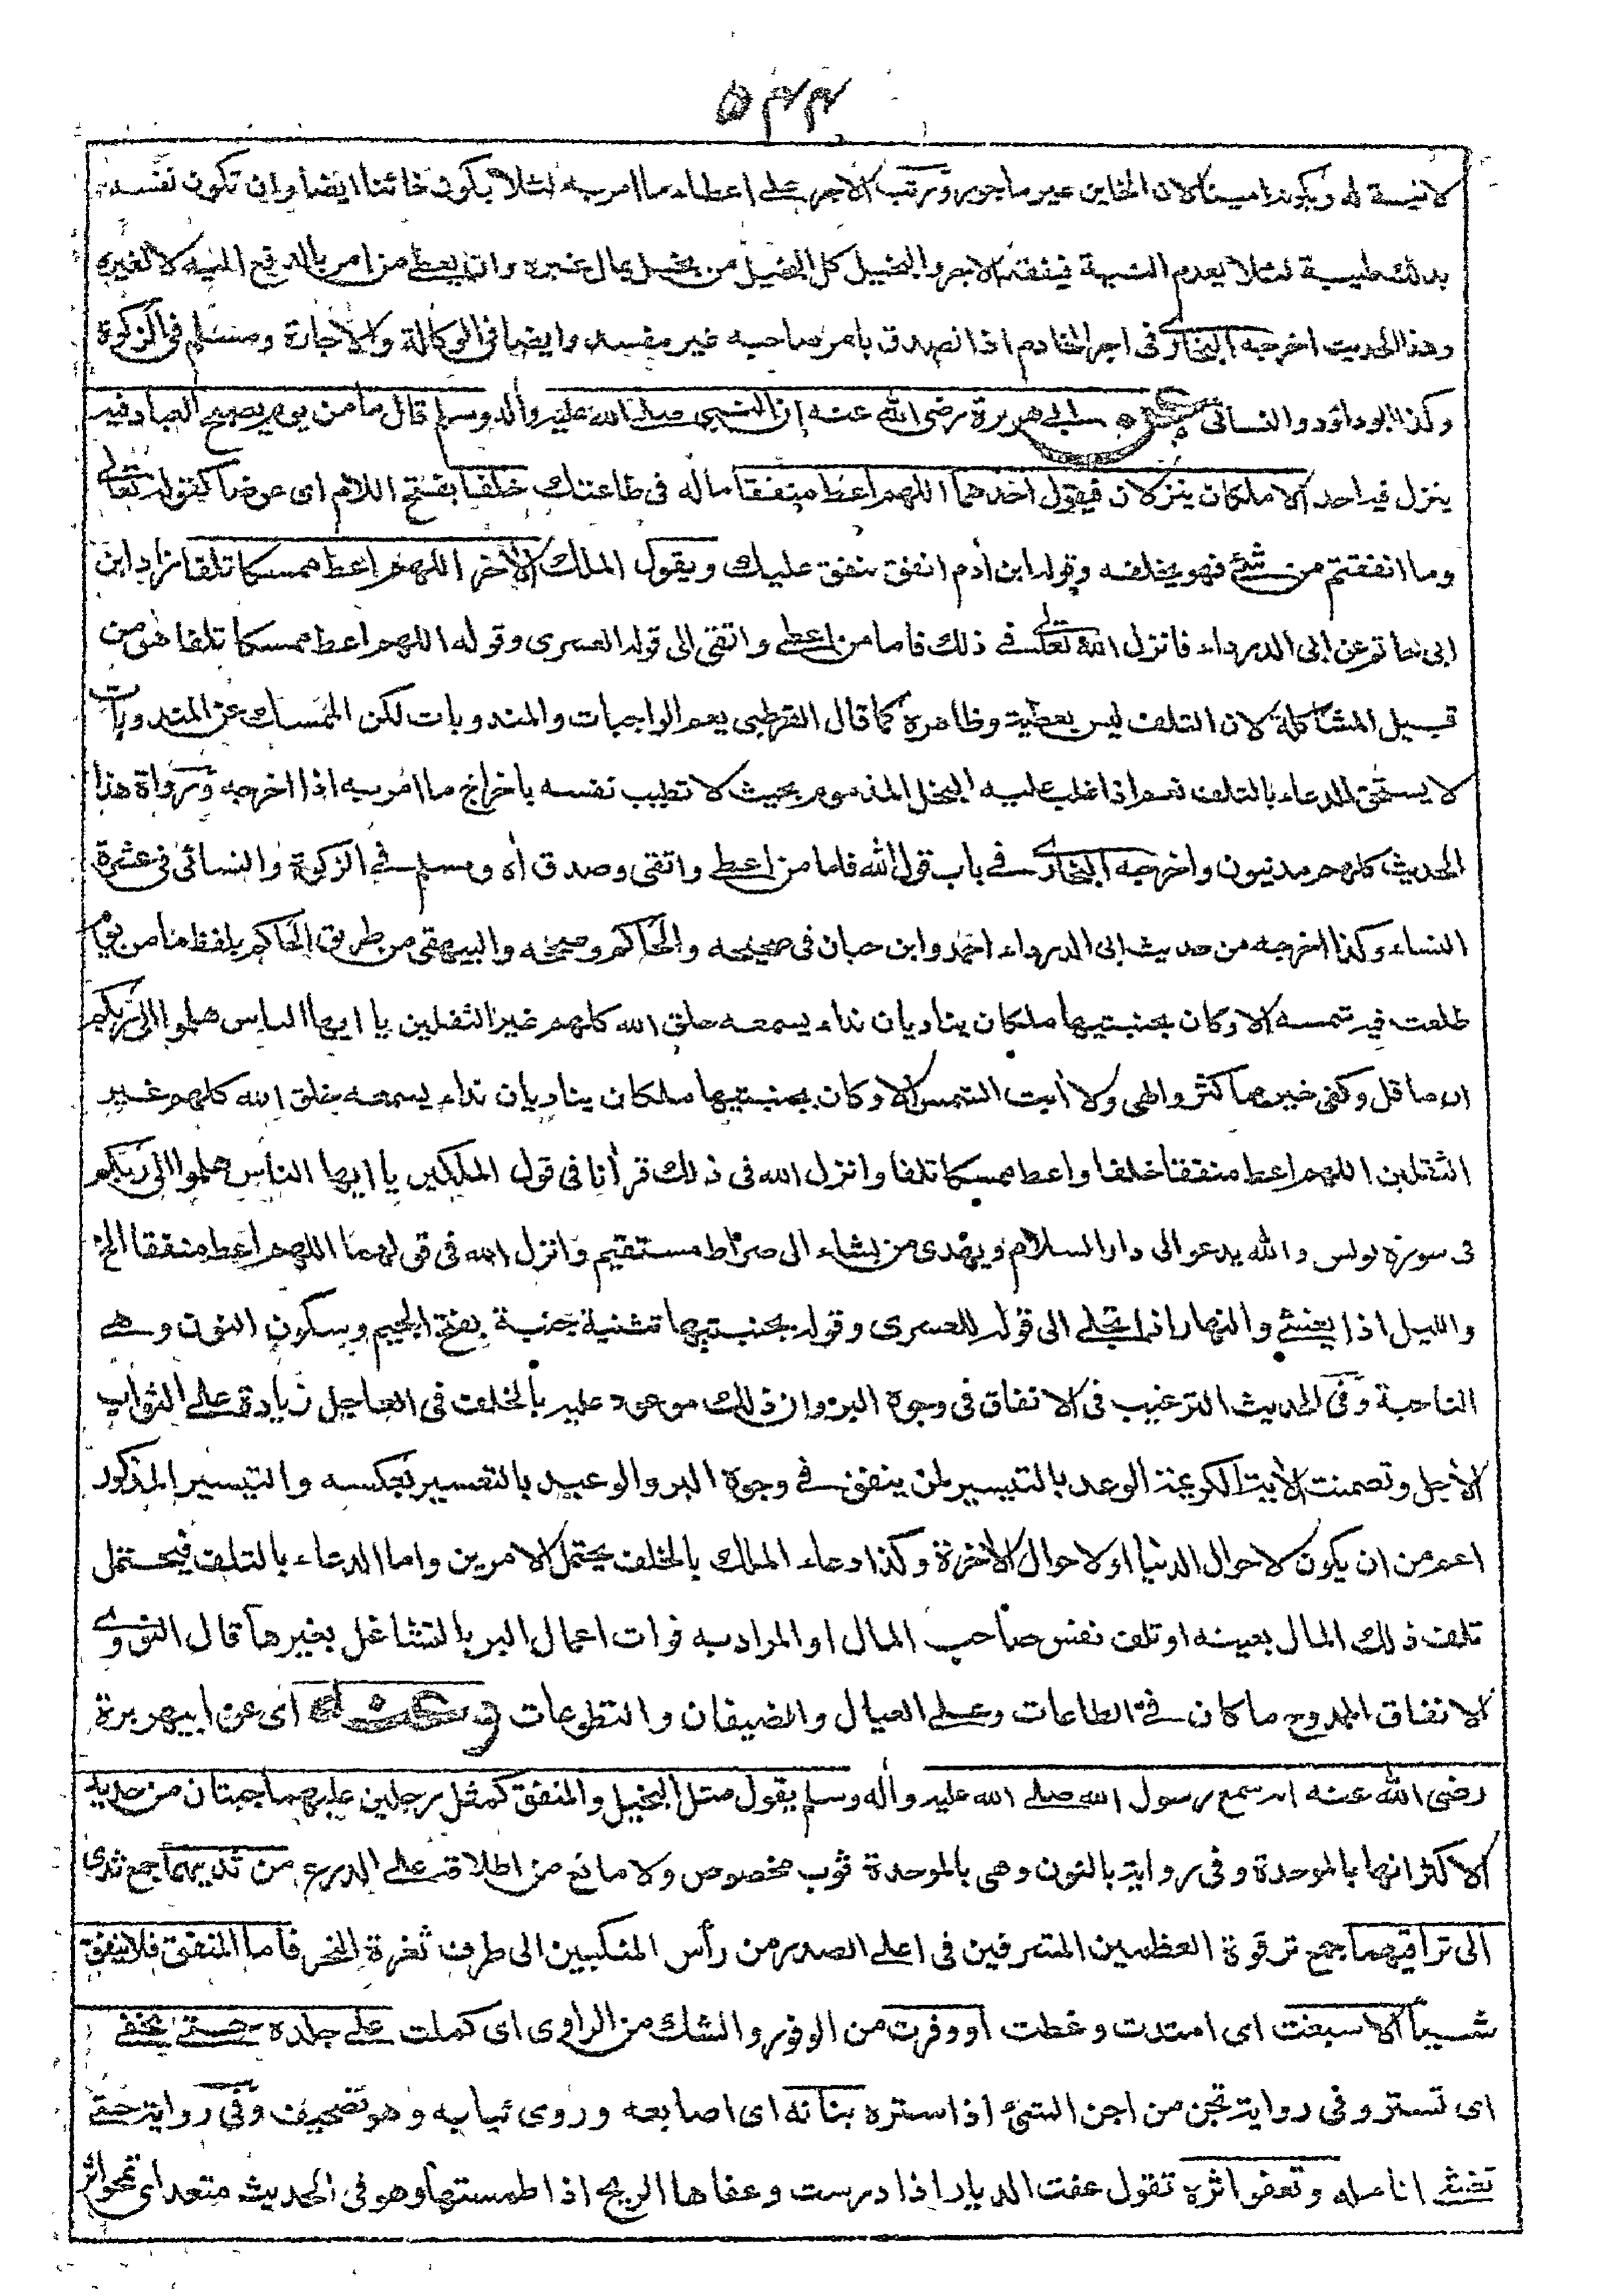 ۵۴۴
لا نية له ويكون امينا لان الخاين غير ماجور ورتب الاجر على اعطاء ما امر به لئلا يكون خائنا ايضا وان تكون نفسه
بذلك طيبة لئلا يعدم النية فيفقد الاجر والبخيل كل البخيل من بخيل بمال غيره وان يعطى من امر بالدفع اليه لا لغيره
وهذا الحديث اخرجه البخارى فى اجر الخادم اذا تصدق بامر صاحبه غير مفسد وايضا فى الوكالة والاجارة ومسلم فى الزكوة
وكذا ابو داود والنسائى عن ابى هريرة رضى الله عنه ان النبى صلى الله عليه واله وسلم قال ما من يوم يصبح العباد فيه
ينزل فيه احد الا ملكان ينزلان فيقول احدهما اللهم اعط منفقا ماله فى طاعتك خلفا بفتح اللام اى عوضا كقوله تعالى
وما انفقتم من شئ فهو يخلفه وقوله ابن أدم انفق ننفق عليك ويقول الملك الأخر اللهم اعط ممسكا تلفا زاد ابن
ابى حاتم عن ابى الدرداء فانزل الله تعالى فى ذلك فاما من اعطى واتقى الى قوله العسرى وقوله اللهم اعط ممسكا تلفا هو من
قبيل المشاكلة لان التلف ليس بعطية وظاهره كما قال القرطبى يعم الواجبات والمندوبات لكن الممسك عن المندوبات
لا يستحق الدعاء بالتلف نعم اذا غلب عليه البخل المذموم بحيث لا تطيب نفسه باخراج ما امر به اذا اخرجه ورواة هذا
الحديث كلهم مدنيون واخرجه البخارى فى باب قول الله فاما من اعطى واتقى وصدق أه ومسلم فى الزكوة والنسائى فى عشرة
النساء وكذا اخرجه من حديث ابى الدرداء احمد وابن حبان فى صحيحه والحاكم وصححه والبيهقى من طريق الحاكم بلفظ ما من يوم
طلعت فيه شمسه الا وكان بجنبتيها ملكان يناديان نداء يسمعه خلق الله كلهم غير الثقلين يا ايها الناس هلموا الى ربكم
ان ما قل وكفى خير مما كثر والهى ولا أبت الشمس الا وكان بجنبتيها ملكان يناديان نداء يسمعه خلق الله كلهم غير
الثقلين اللهم اعط منفقا خلفا واعط ممسكا تلفا وانزل الله فى ذلك قرأنا فى قول الملكين يا ايها الناس هلموا الى ربكم
فى سورة يونس والله يدعو الى دار السلام ويهدى من يشاء الى صراط مستقيم وانزل الله فى قولهما اللهم اعط منفقا الخ
والليل اذا يغشى والنهار اذا تجلى الى قوله للعسرى وقوله بجنبتيها تثنية جنبة بفتح الجيم وسكون النون وهى
الناحية وفى الحديث الترغيب فى الانفاق فى وجوه البر وان ذلك موعود عليه بالخلف فى العاجل زيادة على الثواب
الأجل وتضمنت الأية الكريمة الوعد بالتيسير لمن ينفق فى وجوه البر والوعيد بالتعسير بعكسه والتيسير المذكور
اعم من ان يكون لاحوال الدنيا او لاحوال الأخرة وكذا دعاء الملك بالخلف يحتمل الامرين واما الدعاء بالتلف فيحتمل
تلف ذلك المال بعينه او تلف نفس صاحب المال او المراد به فوات اعمال البر بالتشاغل بغيرها قال النووى
الانفاق الممدوح ما كان فى الطاعات وعلى العيال والضيفان والتطوعات وعنه اى عن ابى هريرة
رضى الله عنه انه سمع رسول الله صلى الله عليه وأله وسلم يقول مثل البخيل والمنفق كمثل رجلين عليهما جبتان من حديد
الاكثر انها بالموحدة وفى رواية بالنون وهى بالموحدة ثوب مخصوص ولا مانع من اطلاقه على الدرع من ثديهما جمع ثدى
الى تراقيهما جمع ترقوة العظمين المشرفين فى اعلى الصدر من رأس المنكبين الى طرف ثغرة النحر فاما المنفق فلا ينفق
شيأ الا سبغت اى امتدت وغطت او وفرت من الوفور والشك من الراوى اى كملت على جلده حتى تخفى
اى تستر وفى رواية تجن من اجن الشئ اذا ستره بنانه اى اصابعه وروى ثيابه وهو تصحيف وفى رواية حتى
تغشى انامله وتعفو اثره تقول عفت الديار اذا درست وعفاها الريح اذا طمستها وهو فى الحديث متعد اى تمحو اثر